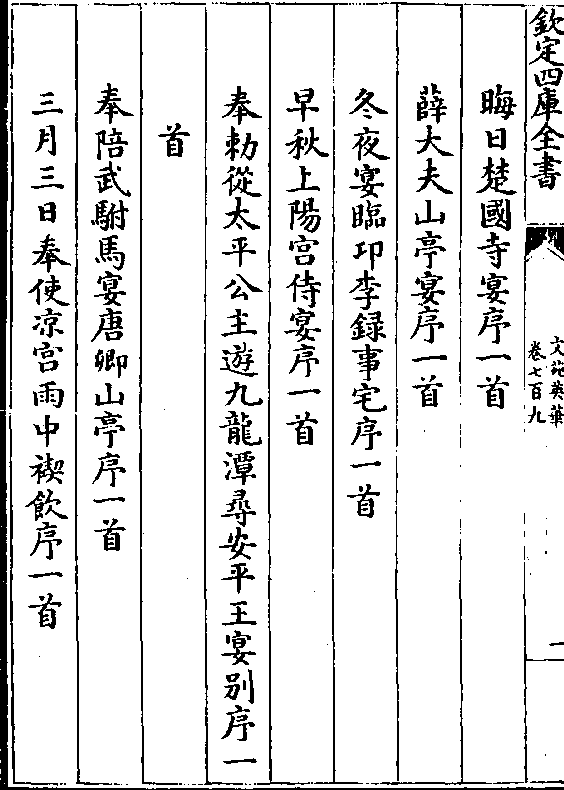 欽定四庫全書
文苑英華
卷七百九
一
晦日楚國寺宴序一首
薛大夫山亭宴序一首
冬夜宴臨邛李録事宅序一首
早秋上陽宫侍宴序一首
奉勅從太平公主遊九龍潭尋安平王宴别序一
首
奉陪武駙馬宴唐卿山亭序一首
三月三日奉使凉宫雨中禊飲序一首